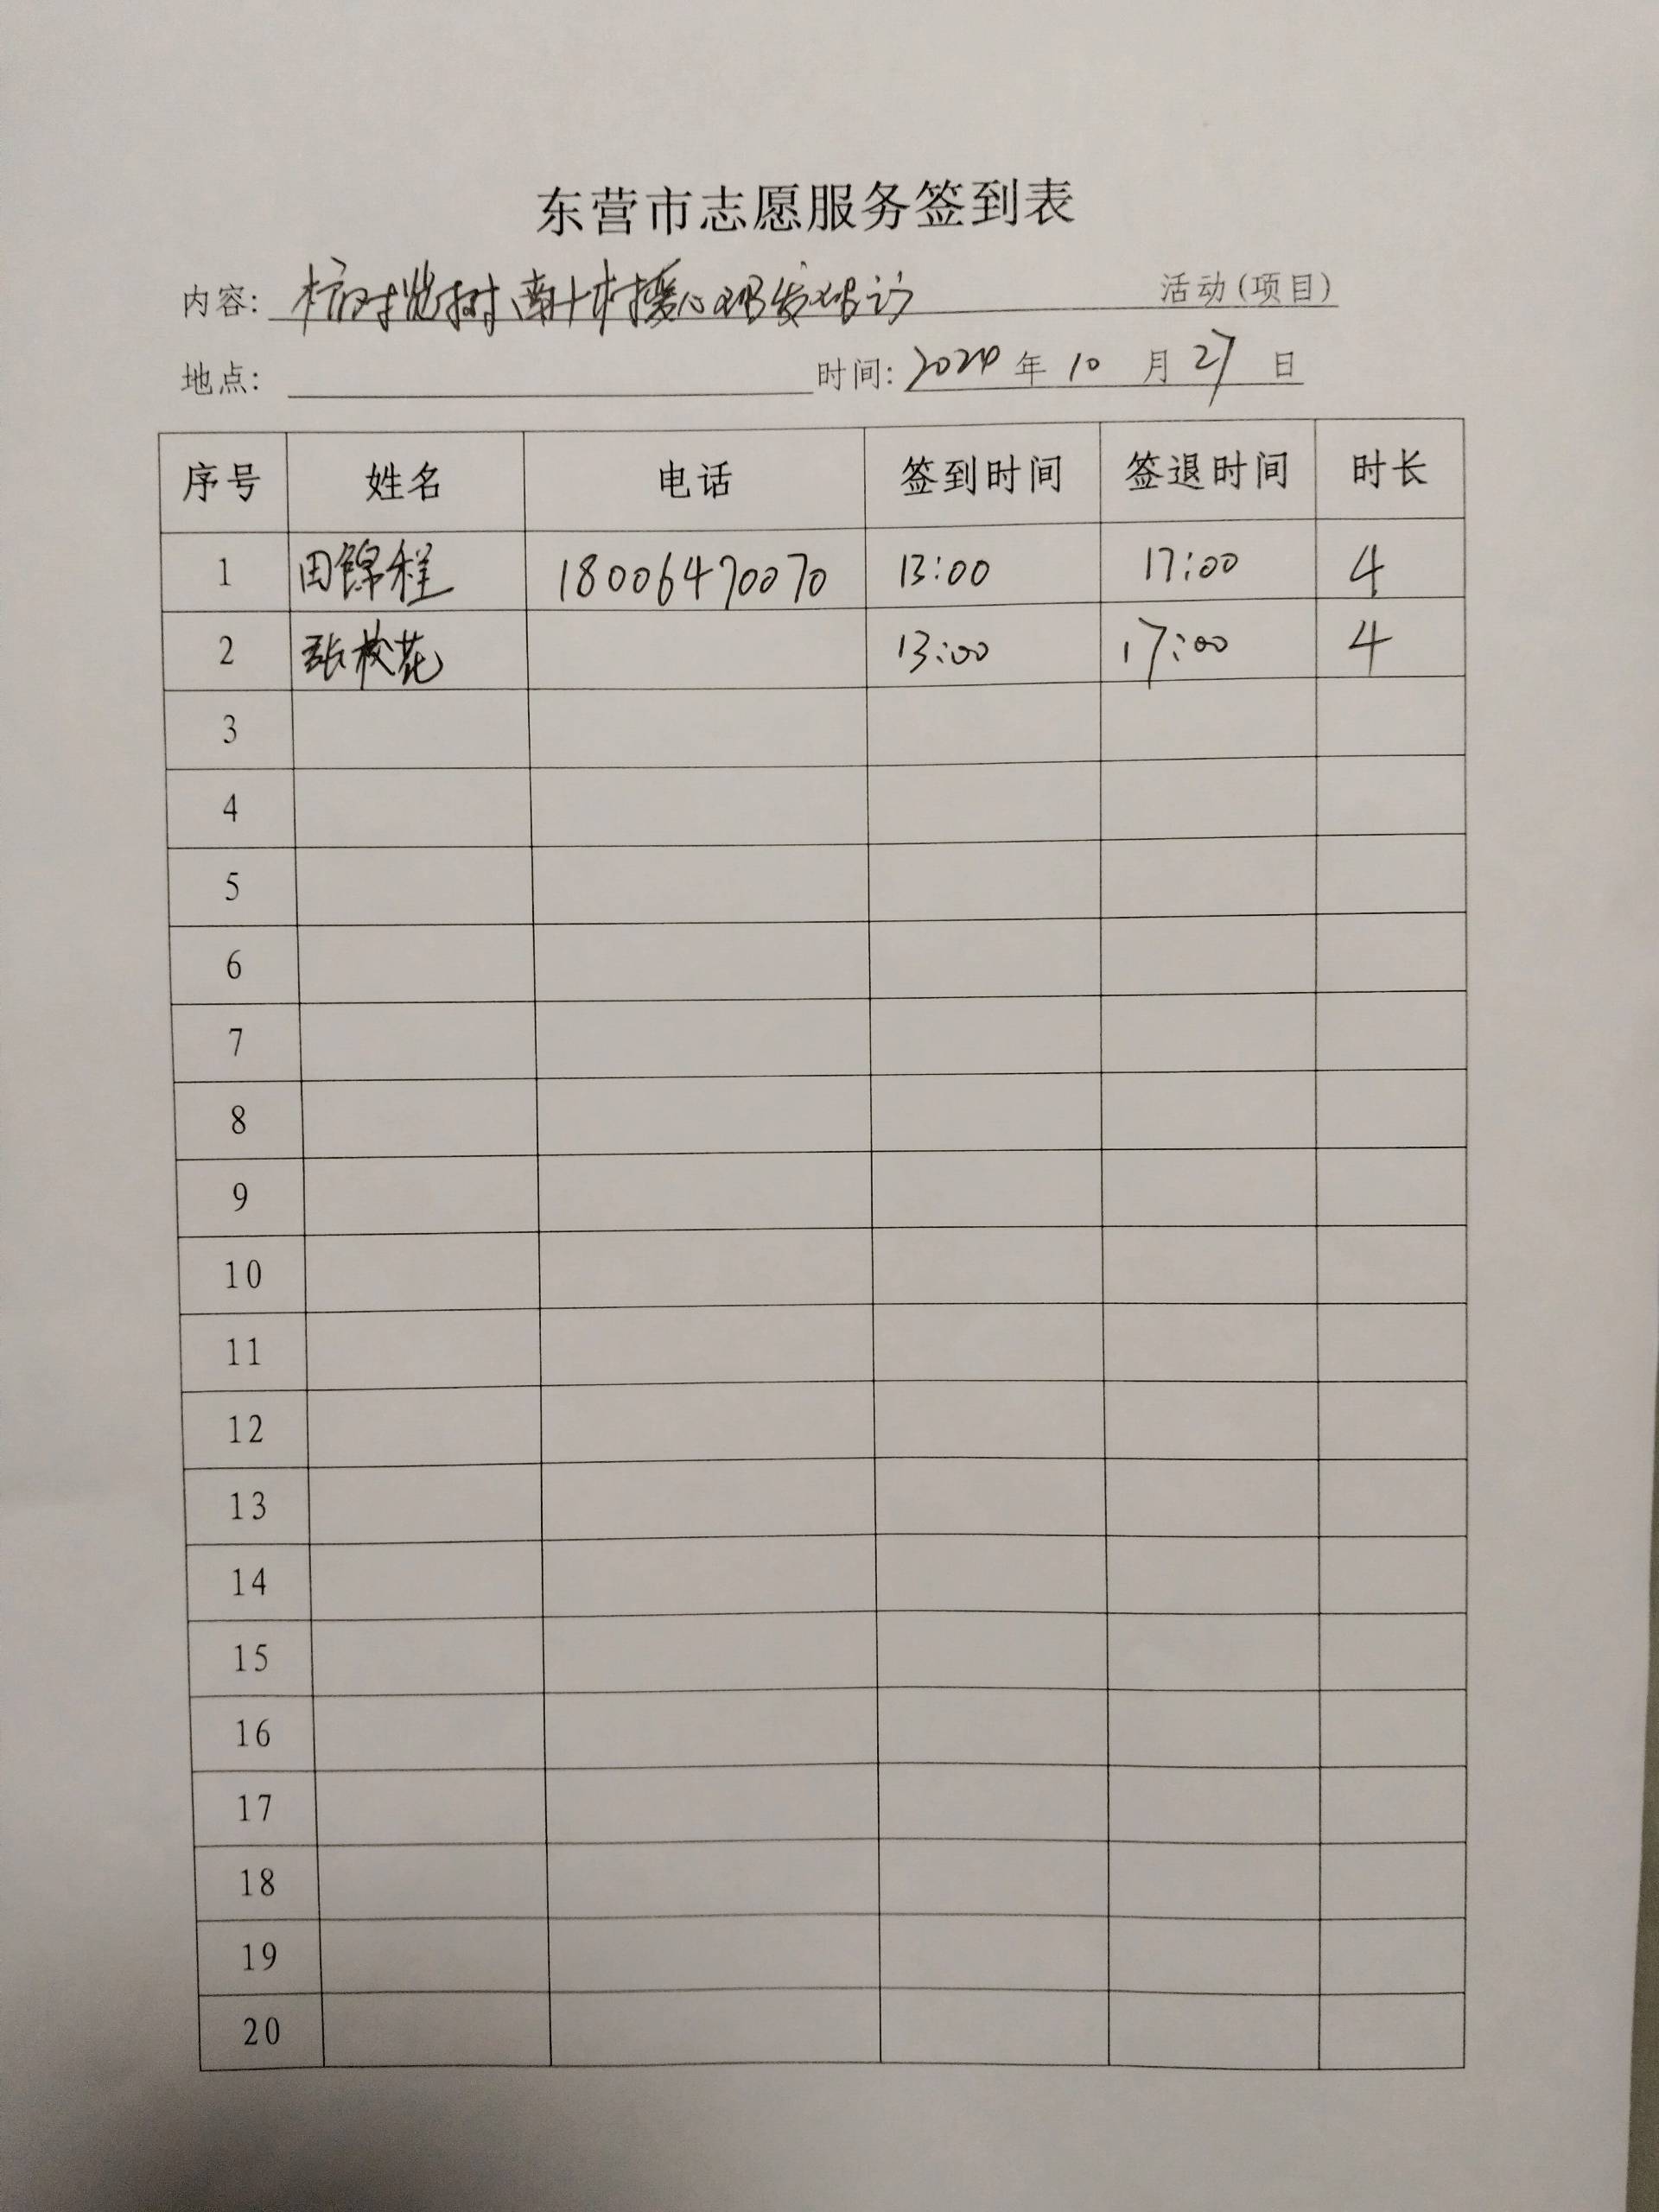 东营市志愿服务签到表
内容: 活动(项目)
地点: 时间: 2024 年 10 月 27 日
序号 姓名 电话 签到时间 签退时间 时长
1 田锦程 18006470070 13:00 17:00 4
2 张花 13:00 17:00 4
3
4
5
6
7
8
9
10
11
12
13
14
15
16
17
18
19
20